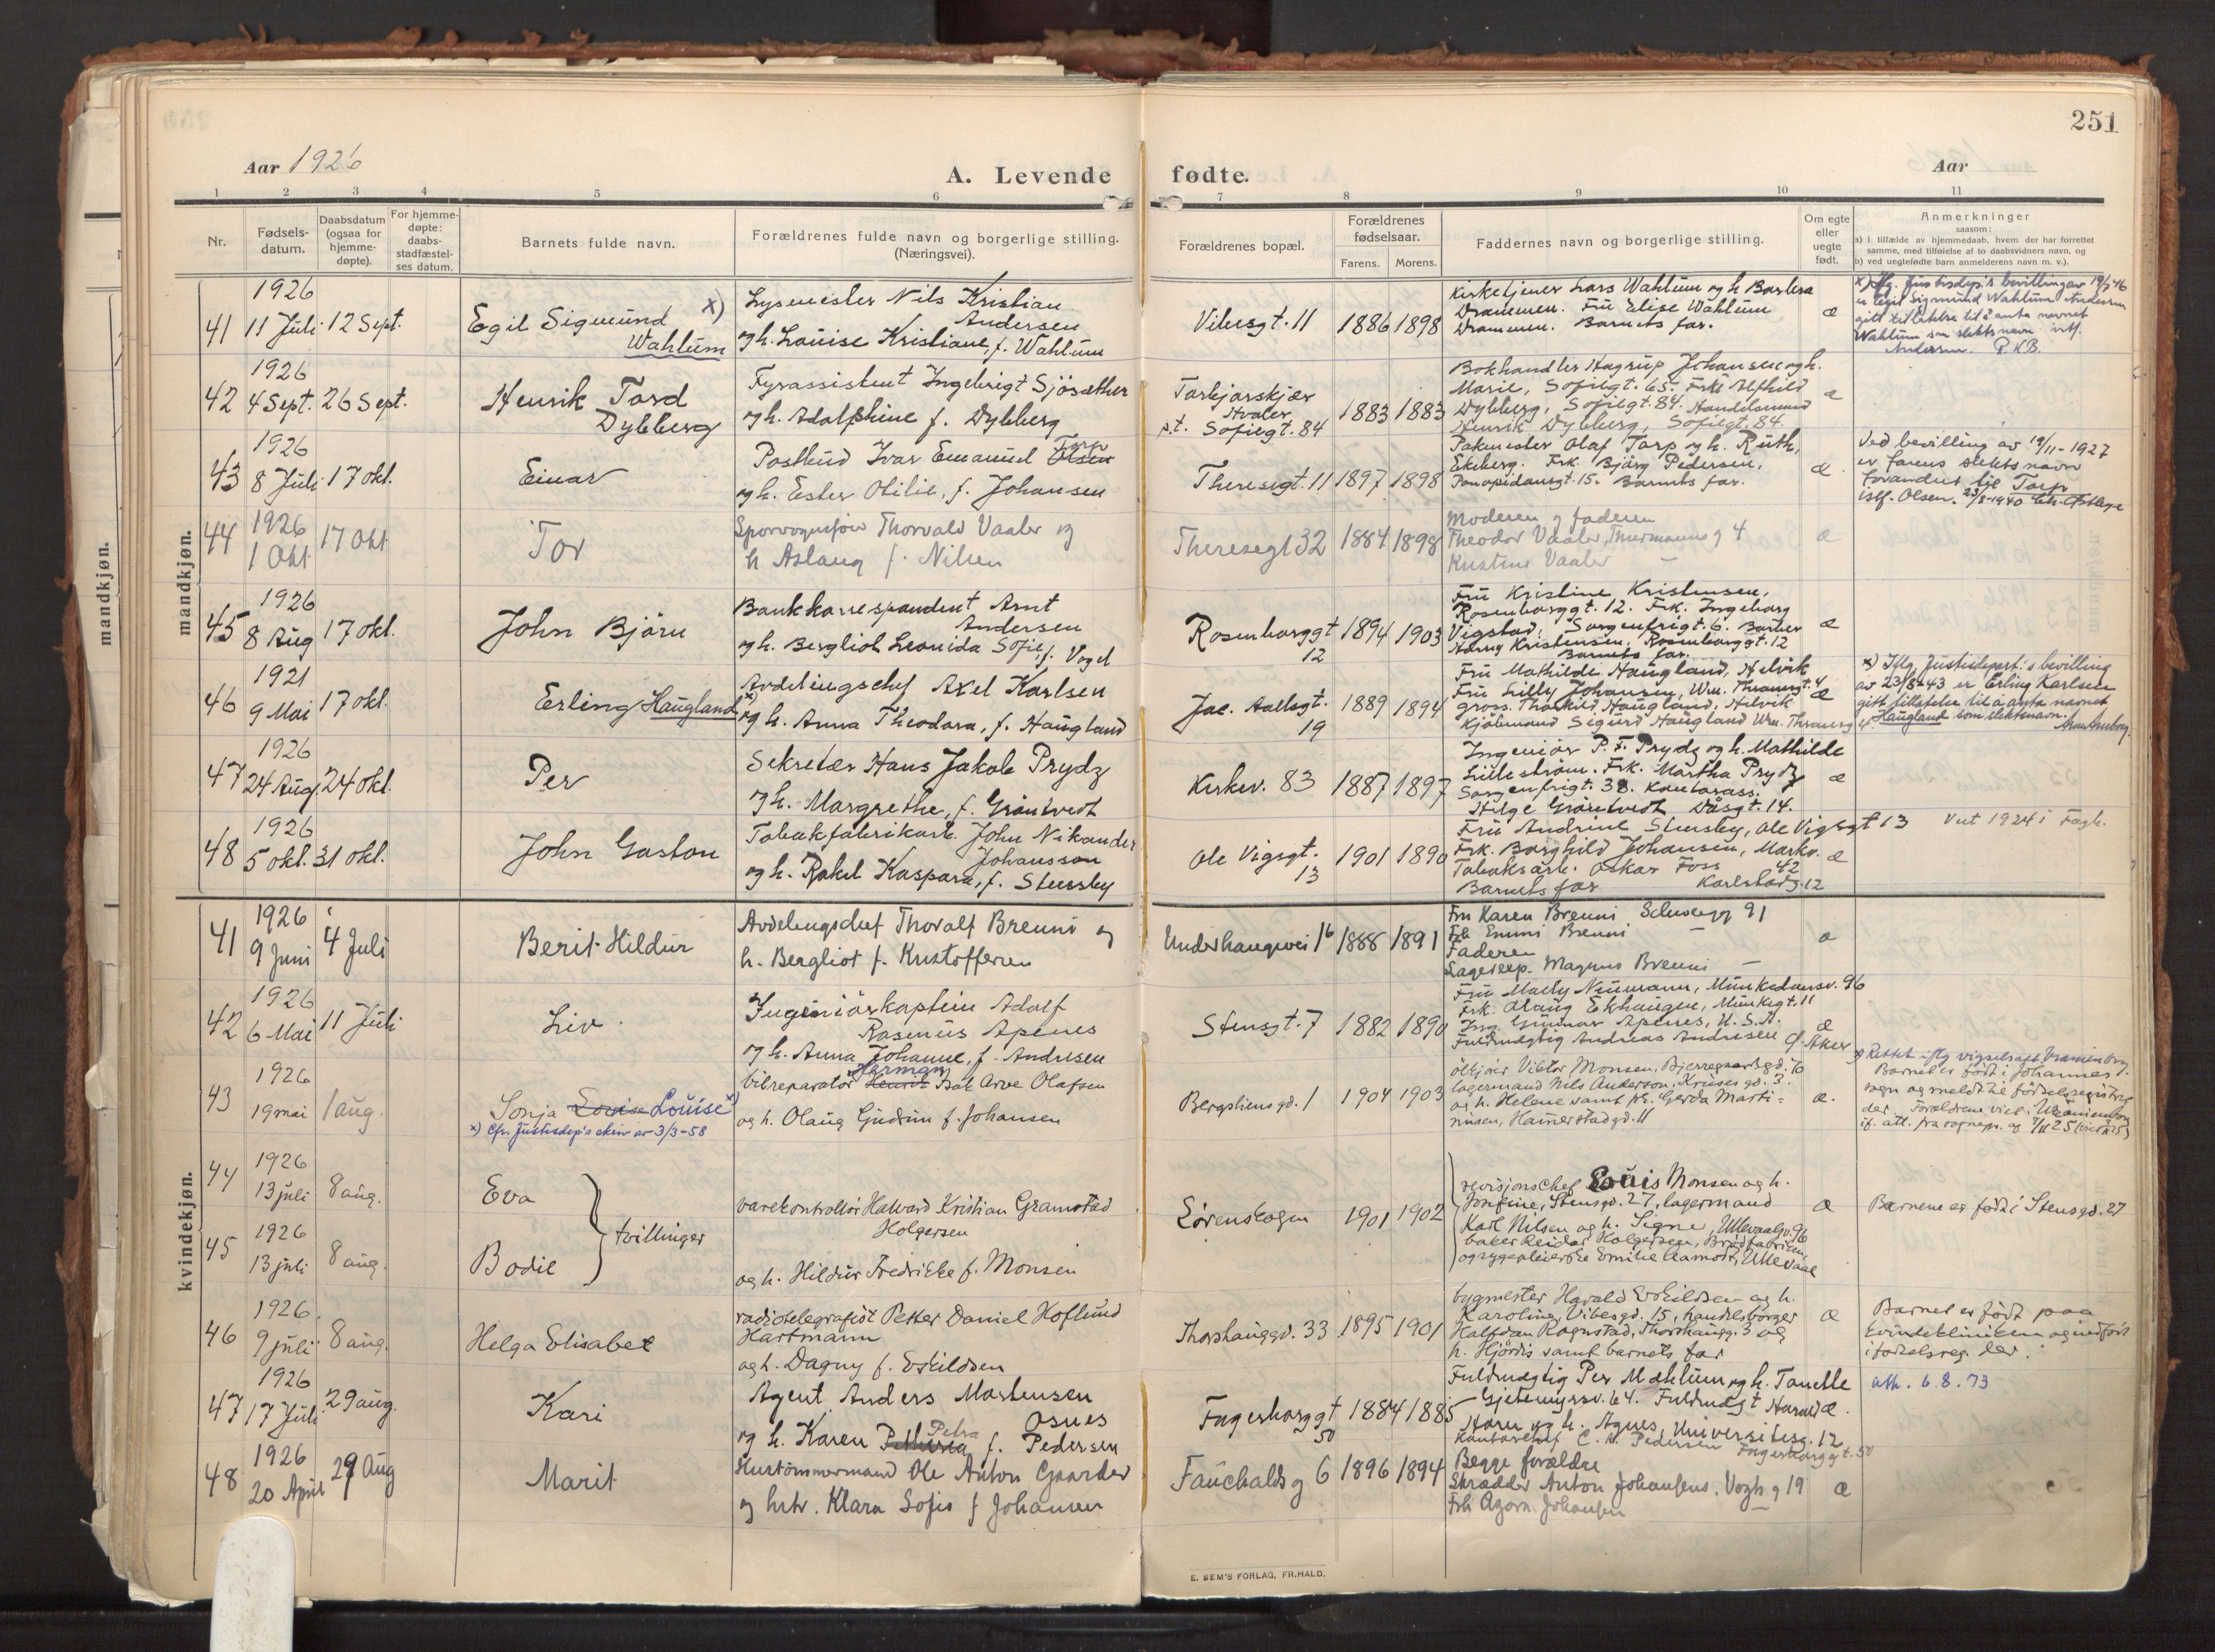 251
Aar 1926
A. Levende fødte.
Aar
1 2 3 4 5 6 7 8 9 10 11
Nr.
Fødsels-
datum.
Daabsdatum
(ogsaa for
hjemme-
døpte).
For hjemme-
døpte:
daabs-
stadfæstel-
ses datum.
Barnets fulde navn.
Forældrenes fulde navn og borgerlige stilling.
(Næringsvei).
Forældrenes bopæl.
Forældrenes
fødselsaar.
Farens. Morens.
Faddernes navn og borgerlige stilling.
Om egte
eller
uegte
født.
Anmerkninger
saasom:
a) i tilfælde av hjemmedaab, hvem der har forrettet
samme, med tilføielse af to daabsvidners navn, og
b) ved uegtefødte barn anmelderens navn m. v.).
mandkjøn.
mandkjøn.
41
1926
11 Juli
12 Sept.
Egil Sigmund x)
Wahlum
Lysmester Nils Kristian
Andersen
og h. Louise Kristiane, f. Wahlum
Vibesgt. 11
1886 1898
Kirketjener Lars Wahlum og h. Barbra
Drammen. Fru Elise Wahlum
Drammen. Barnets far.
æ
x) Iflg. Justisdep.'s bevilling av 19/7 46
er Egil Sigmund Wahlum Andersen
gitt tillatelse til å anta navnet
Wahlum som slektsnavn istf.
Andersen. P.K.B.
42
1926
4 Sept.
26 Sept.
Henrik Tord
Dybberg
Fyrassistent Ingebrigt Sjøsæther
og h. Adolphine f. Dybberg
Torbjørskjær
Hvaler
p.t. Sofiegt. 84
1883 1883
Bokhandler Hagrup Johansen og h.
Marie, Sofiegt. 65. Frk. Alfhild
Dybberg, Sofiegt. 84. Handelsmand
Henrik Dybberg, Sofiegt. 84.
æ
43
1926
8 Juli
17 okt.
Einar
Postbud Ivar Emanuel Olsen Torp
og h. Ester Otilie, f. Johansen
Theresegt. 11
1897 1898
Pakmester Olaf Torp og h. Ruth,
Ekeberg. Frk. Bjørg Pedersen,
Pontopidansgt. 15. Barnets far.
æ
Ved bevilling av 19/11-1927
er farens slektsnavn
forandret til Torp
istf. Olsen. 23/8-1940
44
1926
1 Okt
17 Okt
Tor
Sporvognsfører Thorvald Vaaler og
h Aslaug f. Nilsen
Theresegt 32
1884 1898
Moderen og faderen
Theodor Vaaler, Thurmannsg 4
Kristine Vaaler —
æ
45
1926
8 Aug
17 okt.
John Bjørn
Bankkorrespondent Arnt
Andersen
og h. Bergliot Leonida Sofie, f. Vogel
Rosenborggt
12
1894 1903
Fru Kristine Kristensen,
Rosenborggt. 12. Frk. Ingeborg
Vigstad, Sorgenfrigt. 6. Barber
Harry Kristensen, Rosenborggt. 12
Barnets far.
æ
46
1921
9 Mai
17 okt.
Erling Haugland x)
Avdelingschef Axel Karlsen
og h. Anna Theodora, f. Haugland
Jac. Aallsgt.
19
1889 1894
Fru Mathilde Haugland, Helvik
Fru Lilly Johansen, Wm. Thranesgt. 4
gross. Thorkild Haugland, Helvik
Kjøbmand Sigurd Haugland Wm. Thranesg 4.
æ
x) Iflg. Justisdepart.'s bevilling
av 23/8-43 er Erling Karlsen
gitt tillatelse til å anta navnet
Haugland som slektsnavn.
47
1926
24 Aug.
24 okt.
Per
Sekretær Hans Jakob Prydz
og h. Margrethe, f. Grøntvedt
Kirkev. 83
1887 1897
Ingeniør P. F. Prydz og h. Mathilde
Lillestrøm. Frk. Martha Prydz
Sorgenfrigt. 38. Kontorass.
Helge Grøntvedt Daasgt. 14.
æ
48
1926
5 okt.
31 okt.
John Gaston
Tobakfabrikarb. John Nikander
Johansson
og h. Rakel Kaspara, f. Stensby
Ole Vigsgt.
13
1901 1890
Fru Andrine Stensby, Ole Vigsgt 13
Frk. Borghild Johansen, Markv. 42
Tobaksarb. Oskar Foss
Barnets far Karlstadg. 12
æ
41
1926
9 Juni
4 Juli
Berit Hildur
Avdelingschef Thoralf Brenni og
h. Bergliot f. Kristoffersen
Underhaugsvei 1b
1888 1891
Fru Karen Brenni Schweigg 91
Frk Emmi Brenni —
Faderen
Magnus Brenni —
æ
kvindekjøn.
42
1926
6 Mai
11 Juli
Liv
Ingeniørkaptein Adolf
Rasmus Apenes
og h. Anna Johanne, f. Andresen
Stensgt. 7
1882 1890
Fru Mally Neumann, Munkedamsv. 96
Frk. Olaug Ekhaugen, Munkegt. 11
Ing. Gunnar Apenes, U.S.A.
Fuldmægtig Andreas Andresen Ø. Aker
æ
43
1926
19 mai
1 aug.
Sonja Lovise Louise x)
x) Cfr. Justisdep's skriv av 3/3-58
Bilreparatør Henrik Herman Isak Arve Olafsen
og h. Olaug Gudrun f. Johansen
Bergsliensgd. 1
1904 1903
Viktor Monsen, Bjerregaardsgd. 70
lagermand Nils Anderson, Krusesgd. 3.
og h. Helene samt frk. Gerda Marti-
nusen, Hammerstadgd. 11
æ.
x) Rettet iflg vigselsatt Uranienborg.
Barnet er født i Johannes
sogn og meldt til fødselsregistret
der. Forældrene viet i Uranienborg
44
1926
13 juli
8 aug.
Eva
45
1926
13 juli
8 aug.
Bodil
tvillinger
varekontrollør Halvard Kristian Gramstad
Holgersen
og h. Hildur Fredrikke f. Monsen
Lørenskogen
1901 1902
revisjonschef Louis Monsen og h.
Josefine, Stensgd. 27, lagermand
Karl Nilsen og h. Signe, Ullevaalsv. 96
baker Reidar Holgersen, Brødfabriken,
og sygepleierske Emilie Aamodt, Ullevaal
æ
Barnene er født i Stensgd. 27
46
1926.
9 juli
8 aug.
Helga Elisabet
radiotelegrafist Petter Daniel Hoflund
Hartmann
og h. Dagny f. Eskildsen
Thorshauggd. 33
1895 1901
bygmester Harald Eskildsen og h.
Karoline, Vibesgd. 15, handelsborger
Halfdan Rognstad, Thorshaugg. 3 og
h. Hjørdis samt barnets far
æ
Barnet er født paa
kvindeklinikken og indført
i fødselsreg. der.
47
1926
17 Juli
29 aug.
Kari
Agent Anders Mortensen
Osnes
og h. Karen Petra f. Pedersen
Fagerborggt
50
1884 1885
Fuldmægtig Per Mæhlum og h. Tanette
Gjetemyrsv. 64. Fuldmægt Harald
Horn og h. Agnes, Universitetsg. 12
Kontorchef C. A. Pedersen Fagerborggt. 50
æ.
att. 6.8.73
48
1926
20 April
29 Aug
Marit
Hustømmermand Ole Anton Gaarder
og hstr. Klara Sofie f Johansen
Fauchaldsg 6
1896 1894
Begge forældre
Skrædder Anton Johansens. Vogtsg 19
Johansen —
æ
E. SEM'S FORLAG, FR.HALD.